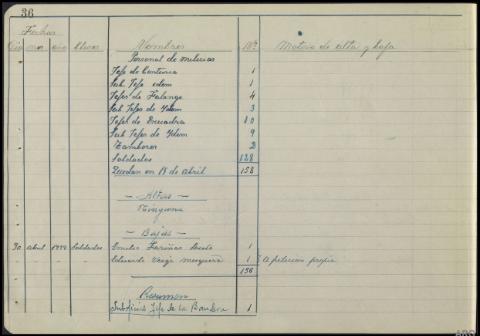 36
Fechas
Dia mes año Clases Nombres Nº Motivo de alta y baja
Personal de milicias
Jefe de Centuria 1
Sub Jefe idem 1
Jefes de Falange 4
Sub Jefes de Ydem 3
Jefes de Escuadra 10
Sub Jefes de Ydem 9
Tambores 2
Soldados 128
Quedan en 18 de abril 158
Altas
Ninguna
Bajas
30 abril Soldados Emilio Fariñas 1
- - - Eduardo 1 A peticion propia
156
Resumen
Jefe de la 1